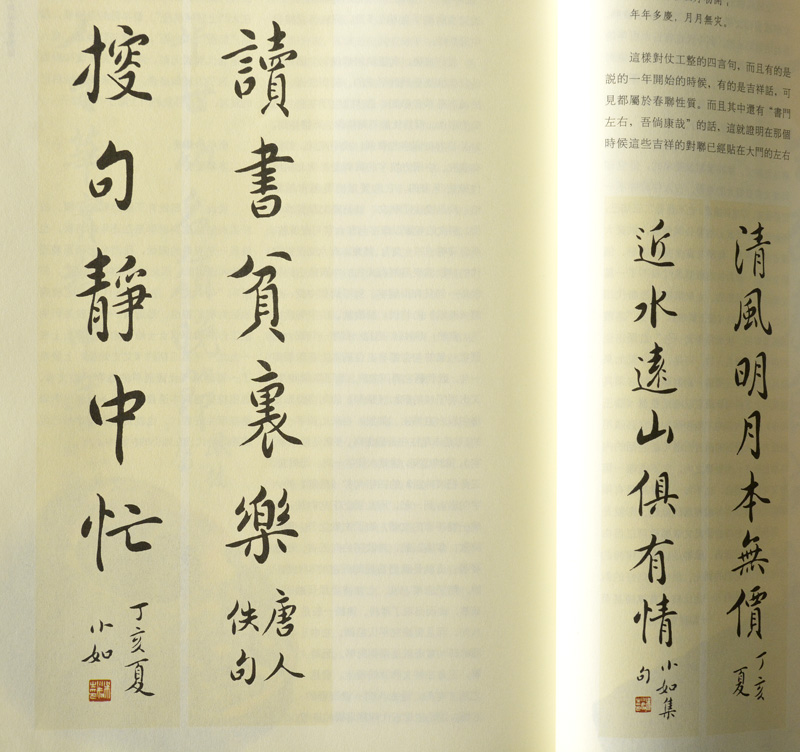 讀書貧裏樂
唐人
佚句
搜句靜中忙
丁亥夏
小如
年年多慶，月月無災。
這樣對仗工整的四言句，而且有的是
説的一年開始的時候，有的是吉祥話，可
見都屬於春聯性質。而且其中還有“書門
左右，吾倘康哉”的話，這就證明在那個
時候這些吉祥的對聯已經貼在大門的左右
清風明月本無價
丁亥
夏
近水遠山俱有情
小如集
句